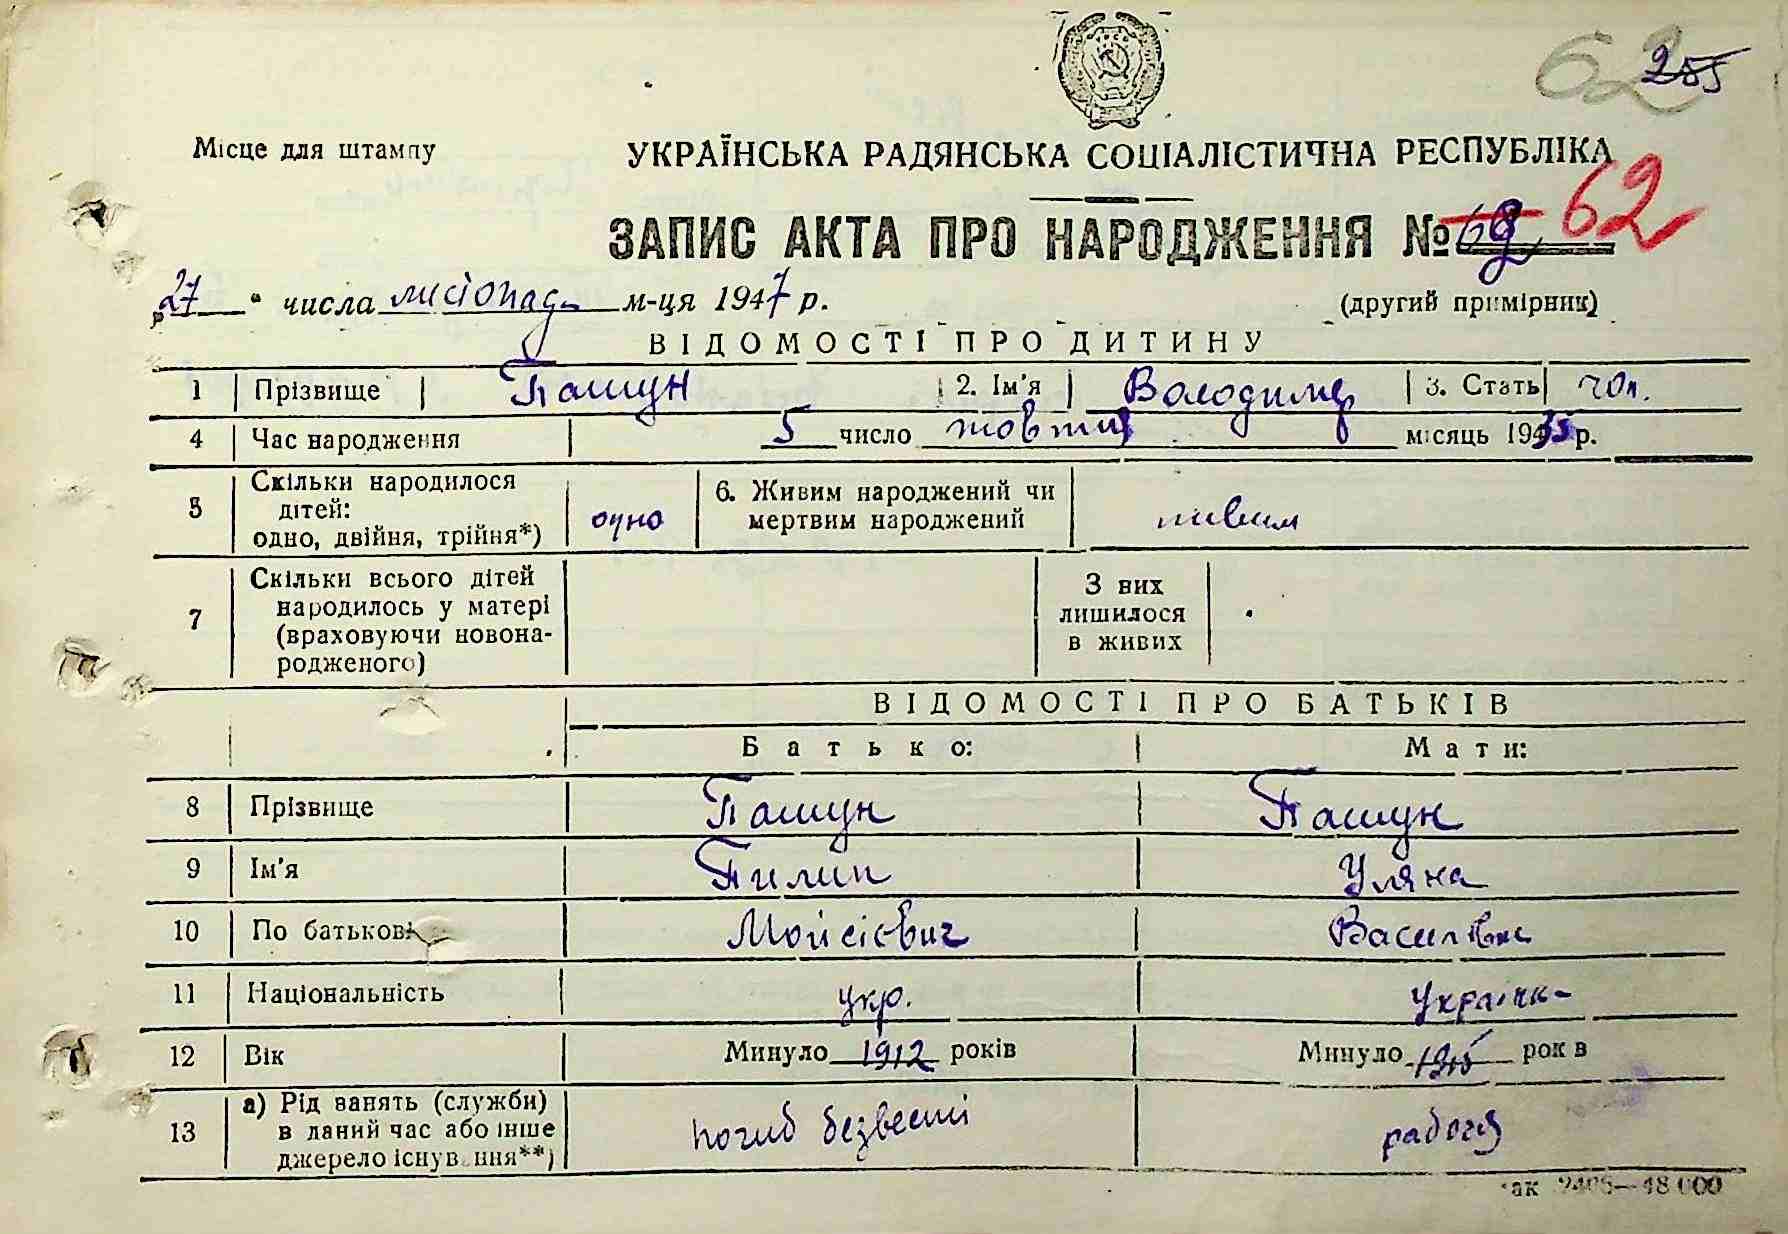 62 255
Місце для штампу
УКРАЇНСЬКА РАДЯНСЬКА СОЦІАЛІСТИЧНА РЕСПУБЛІКА
ЗАПИС АКТА ПРО НАРОДЖЕННЯ № 62
„27" числа листопад м-ця 1947 р.
(другий примірник)
ВІДОМОСТІ ПРО ДИТИНУ
1 Прізвище Пашун 2. Ім'я Володимир 3. Стать чол.
4 Час народження 5 число жовтня місяць 1935 р.
5 Скільки народилося
дітей:
одно, двійня, трійня*) одно
6. Живим народжений чи
мертвим народжений живим
7 Скільки всього дітей
народилось у матері
(враховуючи новона-
родженого)
З них
лишилося
в живих
ВІДОМОСТІ ПРО БАТЬКІВ
Батько: Мати:
8 Прізвище Пашун Пашун
9 Ім'я Пилип Уляна
10 По батькові Мойсієвич Василівна
11 Національність укр. Українк-
12 Вік Минуло 1912 років Минуло 1915 рок в
13 а) Рід занять (служби)
в даний час або інше
джерело існування**)
погиб безвесті рабочя
ак 2408—48 000